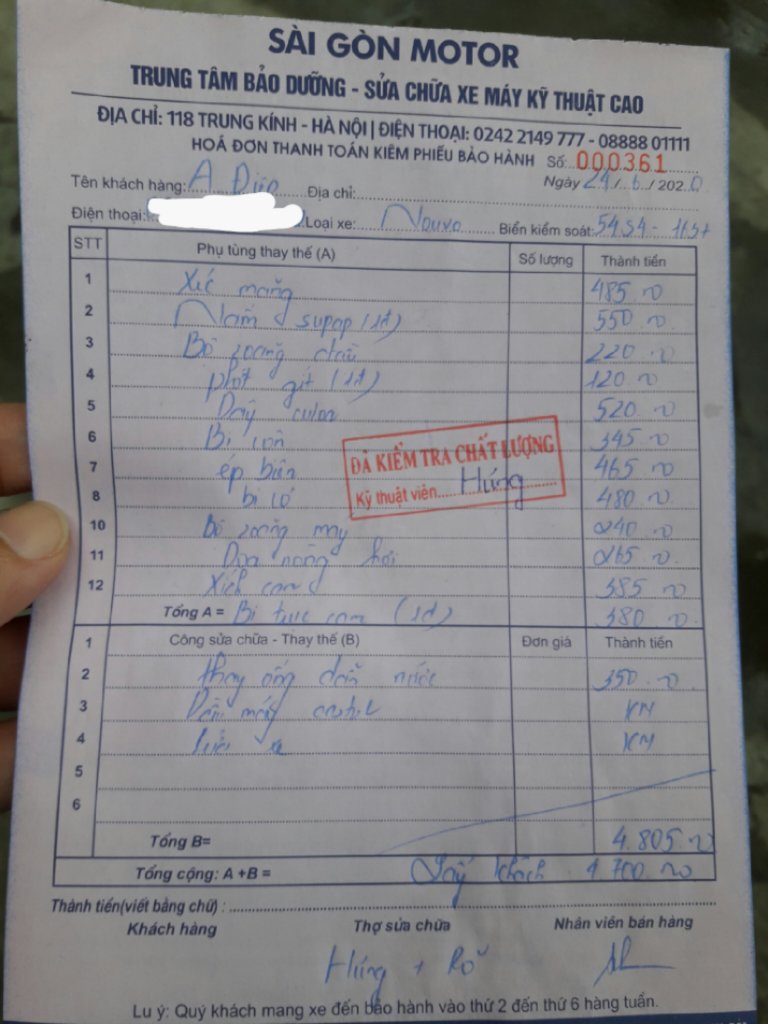 SÀI GÒN MOTOR
TRUNG TÂM BẢO DƯỠNG - SỬA CHỮA XE MÁY KỸ THUẬT CAO
ĐỊA CHỈ: 118 TRUNG KÍNH - HÀ NỘI | ĐIỆN THOẠI: 0242 2149 777 - 08888 01111
HOÁ ĐƠN THANH TOÁN KIÊM PHIẾU BẢO HÀNH Số: 000361
Ngày 24/6/2020
Tên khách hàng: A Đức Địa chỉ:
Điện thoại: Loại xe: Nouvo Biển kiểm soát: 54S4 -
STT Phụ tùng thay thế (A) Số lượng Thành tiền
1 Xéc măng 485
2 Nấm supap (2đ) 550
3 Bộ zoăng đầu 220
4 phớt git (2đ) 120
5 Dây culoa 520
6 Bi côn 345
7 ép biên 465
8 bi cổ 480
10 Bộ zoăng máy 240
11 Doa nòng hơi 265
12 Xích cam 385
Tổng A = Bi trục cam (2đ) 380
ĐÃ KIỂM TRA CHẤT LƯỢNG
Kỹ thuật viên Hùng
1 Công sửa chữa - Thay thế (B) Đơn giá Thành tiền
2 thay ống dẫn nước 350
3 Dầu máy KM
4 xe KM
5
6
Tổng B= 4.805
Tổng cộng: A +B = Lấy khách 4.700
Thành tiền(viết bằng chữ) :
Khách hàng Thợ sửa chữa Nhân viên bán hàng
Hùng +
Lu ý: Quý khách mang xe đến bảo hành vào thứ 2 đến thứ 6 hàng tuần.